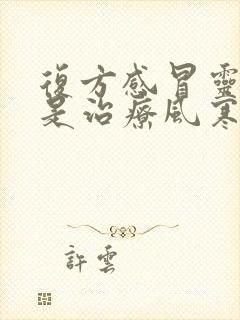 復方感冒靈
是治療風寒
許雲